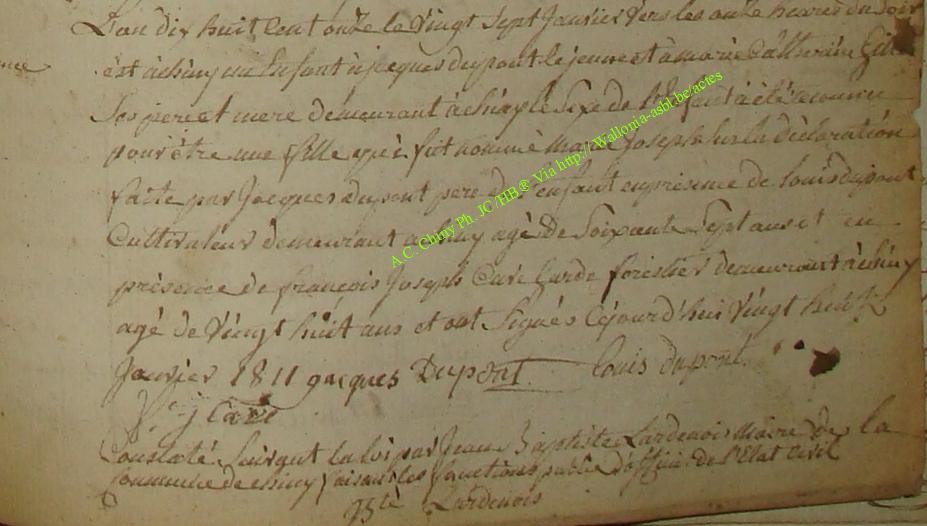 L'an dix huit cent onze le vingt sept Janvier vers les onze heures du soir
est à chiny un Enfant à jacques dupont le jeune et à marie Catherine
Ses pere et mere demeurant à chiny le Sexe de l'enfant à été reconnu
pour être une fille qui fut nommé Marie Joseph sur la déclaration
faite par Jacques dupont pere de l'enfant en présence de louis dupont
Cultivateur demeurant a chiny agé de Soixante Sept ans et en
présence de françois Joseph Caré Garde forestier demeurant à chiny
agé de Vingt huit ans et ont Signés Cejourd'hui vingt huit
Janvier 1811 jacques Dupont louis dupont
j Caré
Constaté Suivant la loi par Jean Baptiste Lardenois Maire de la
Commune de chiny faisant les fonctions public d'officier de l'Etat Civil
Lardenois
A.C. Chiny Ph. JC /HB® Via http://Wallonia-asbl.be/actes